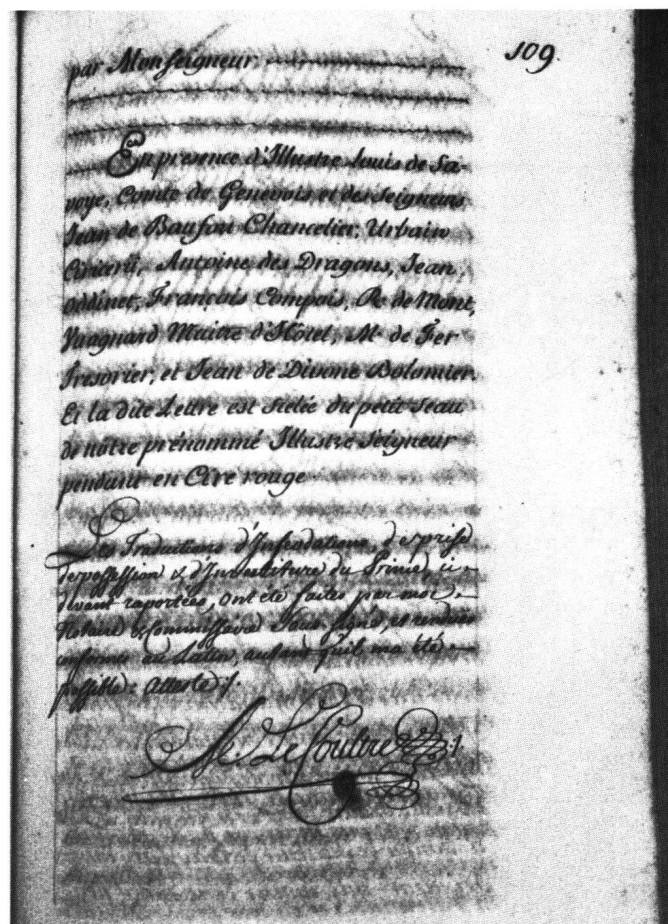 109.
par Monseigneur
En presence d'Illustre Louis de Sa
voye, Comte de Genevois et des Seigneurs
Jean de Baufou Chancelier, Urbain
Antoine des Dragons, Jean
Oddinet, François Compois, R. de Mont,
Vuagnard Maitre d'Hôtel, M. de Fer
Tresorier, et Jean de Divone Bolomier.
Et la dite Lettre est séelée du petit Seau
de notre prénommé Illustre Seigneur
pendant en Cire rouge
Les Traductions d'Infeodations, de prise
de possession & d'Investiture du Prince, ci-
devant raportées, ont été faites par moi
Notaire & Commissaire Sous signé, et rendües
conformes au Latin, autant qu'il m'a été
possible: Atteste /.
Le Coultre